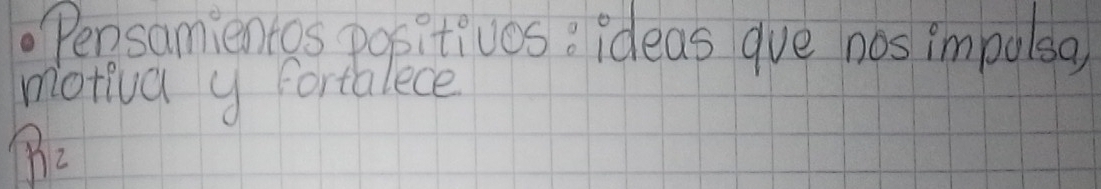 • Pensamientos positivos: ideas que nos impulsa,
motiva y fortalece
R=